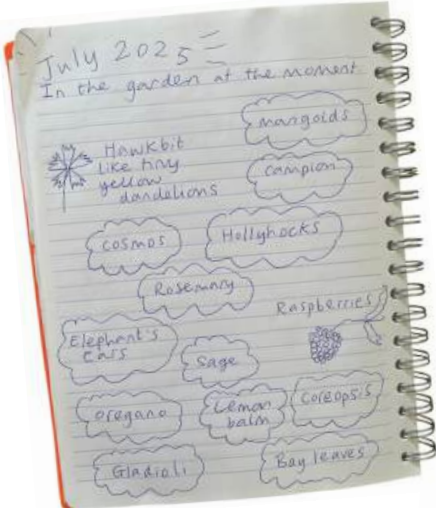 July 2025
In the garden at the moment
marigolds
Hawkbit
like tiny
yellow
dandelions
Campion
Cosmos
Hollyhocks
Rosemary
Raspberries
Elephant's
Ears
Sage
Oregano
Lemon
balm
Coreopsis
Gladioli
Bay leaves